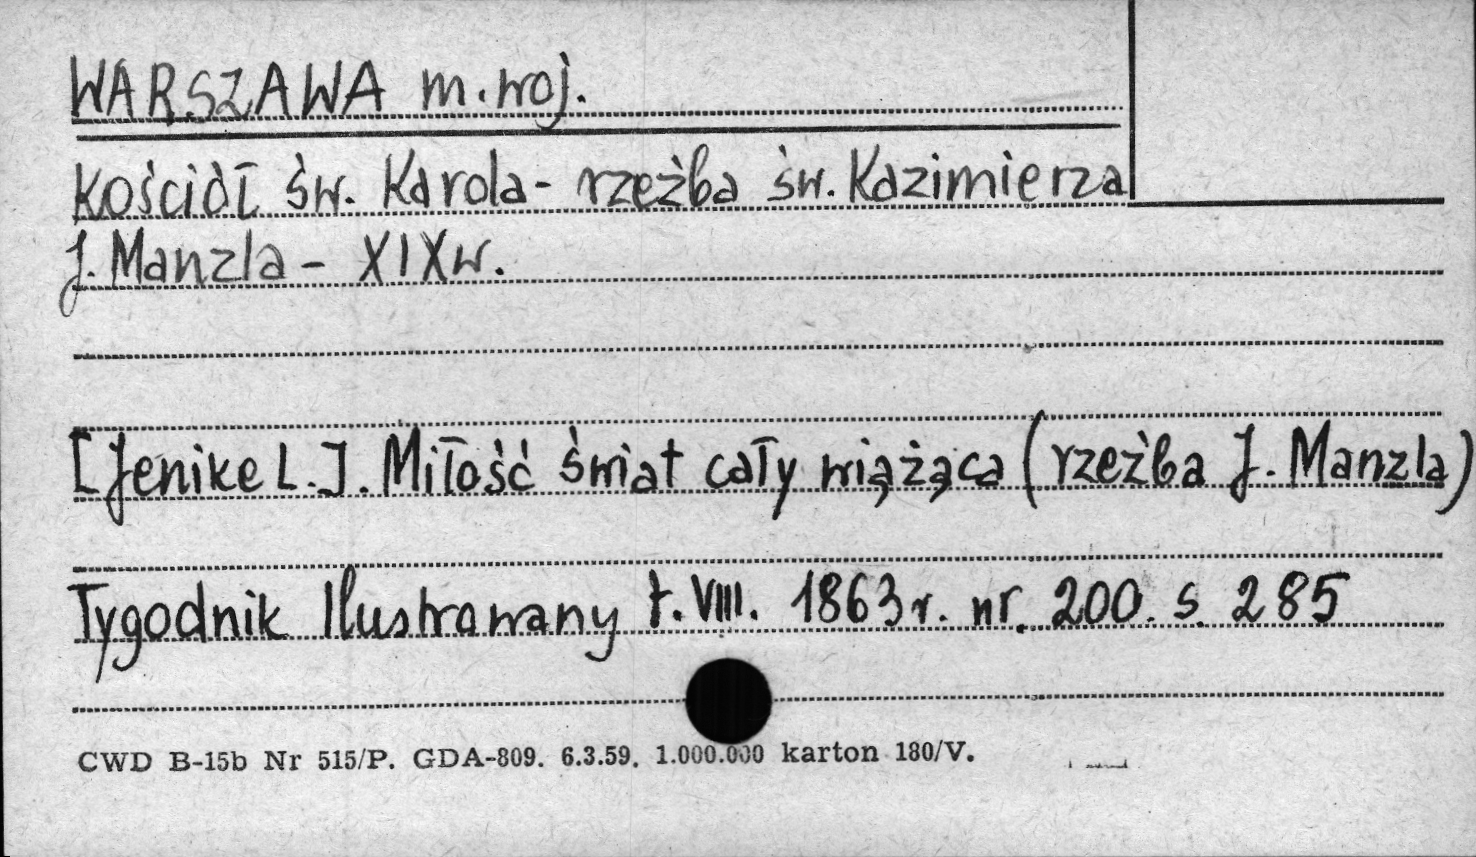 WARSZAWA m. woj.
Kościół św. Karola - rzeźba św. Kazimierza
J. Manzla - XIX w.
[Jenike L.]. Miłość świat cały wiążąca (rzeźba J. Manzla)
Tygodnik Ilustrowany t. VIII. 1863 r. nr. 200. s. 285
CWD B-15b Nr 515/P. GDA-809. 6.3.59. 1.000.000 karton 180/V.